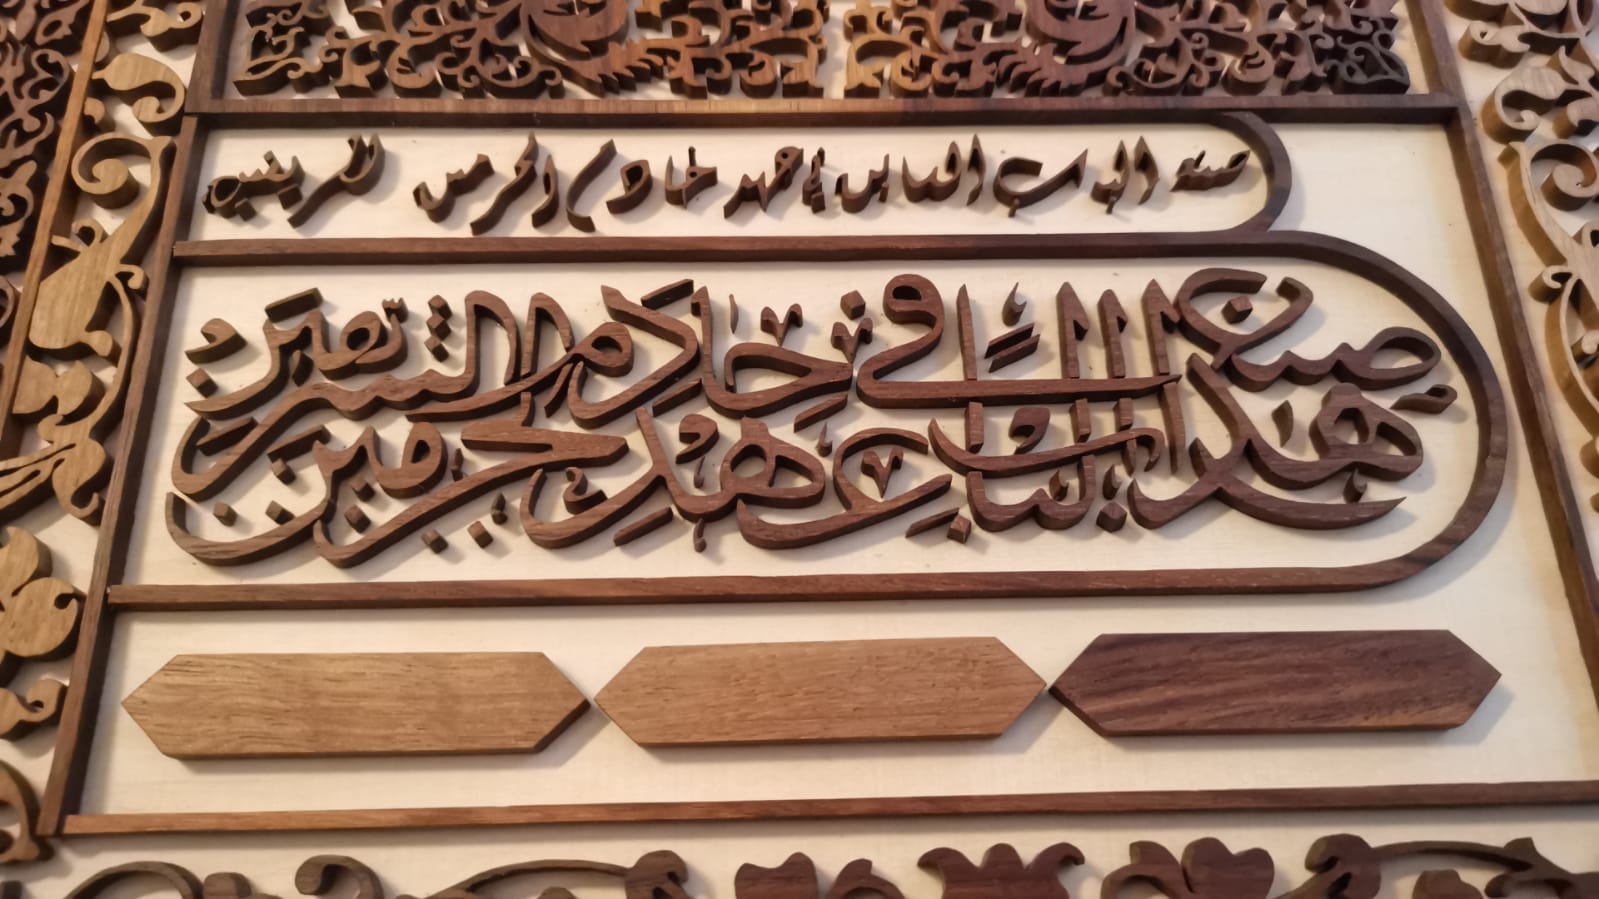 صنع الباب السابق في عهد خادم الحرمين الشريفين
صنع هذا الباب في عهد خادم الحرمين الشريفين